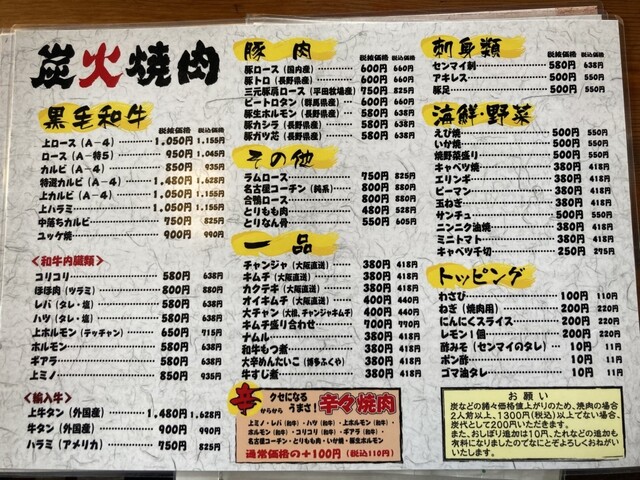 炭火焼肉
黒毛和牛 税抜価格 税込価格
上ロース（A－4） 1,050円 1,155円
ロース（A－特5） 950円 1,045円
カルビ（A－4） 850円 935円
特選カルビ（A－4） 1,480円 1,628円
上カルビ（A－4） 1,050円 1,155円
上ハラミ 1,050円 1,155円
中落ちカルビ 750円 825円
ユッケ焼 900円 990円
＜和牛内臓類＞
コリコリ 580円 638円
ほほ肉（ツラミ） 800円 880円
レバ（タレ・塩） 580円 638円
ハツ（タレ・塩） 580円 638円
上ホルモン（テッチャン） 650円 715円
ホルモン 580円 638円
ギアラ 580円 638円
上ミノ 850円 935円
＜輸入牛＞
上牛タン（外国産） 1,480円 1,628円
牛タン（外国産） 900円 990円
ハラミ（アメリカ） 750円 825円
豚肉 税抜価格 税込価格
豚ロース（国内産） 600円 660円
豚トロ（長野県産） 600円 660円
三元豚肩ロース（平田牧場産） 750円 825円
ピートロタン（群馬県産） 600円 660円
豚生ホルモン（長野県産） 580円 638円
豚カシラ（長野県産） 580円 638円
豚ガツ芯（長野県産） 580円 638円
その他
ラムロース 750円 825円
名古屋コーチン（純系） 800円 880円
合鴨ロース 800円 880円
とりもも肉 480円 528円
とりなん骨 550円 605円
一品
チャンジャ（大阪直送） 380円 418円
キムチ（大阪直送） 380円 418円
カクテキ（大阪直送） 380円 418円
オイキムチ（大阪直送） 400円 440円
大チャン（大根、チャンジャキムチ） 400円 440円
キムチ盛り合わせ 700円 770円
ナムル 380円 418円
和牛もつ煮 380円 418円
大辛めんたいこ（博多ふくや） 380円 418円
牛すじ煮 380円 418円
辛からから クセになるうまさ！ 辛々焼肉
上ミノ・レバ（和牛）・ハツ（和牛）・上ホルモン（和牛）・
ホルモン（和牛）・コリコリ（和牛）・ギアラ（和牛）・
名古屋コーチン・とりもも肉・いか焼・豚生ホルモン
通常価格の＋100円（税込110円）
刺身類 税抜価格 税込価格
センマイ刺 580円 638円
アキレス 500円 550円
豚足 500円 550円
海鮮・野菜
えび焼 500円 550円
いか焼 500円 550円
焼野菜盛り 500円 550円
キャベツ焼 380円 418円
エリンギ 380円 418円
ピーマン 380円 418円
玉ねぎ 380円 418円
サンチュ 380円 418円
ニンニク油焼 380円 418円
ミニトマト 380円 418円
キャベツ千切 250円 275円
トッピング
わさび 100円 110円
ねぎ（焼肉用） 200円 220円
にんにくスライス 200円 220円
レモン1個 200円 220円
酢みそ（センマイのタレ） 10円 11円
ポン酢 10円 11円
ゴマ油タレ 10円 11円
お願い
炭などの諸々価格値上がりのため、焼肉の場合
2人前以上、1300円（税込）以上でない場合、
炭代として200円いただきます。
また、おしぼり追加は10円、タレなどの追加も
有料になりましてのでなにとぞよろしくおねがい
いたします。